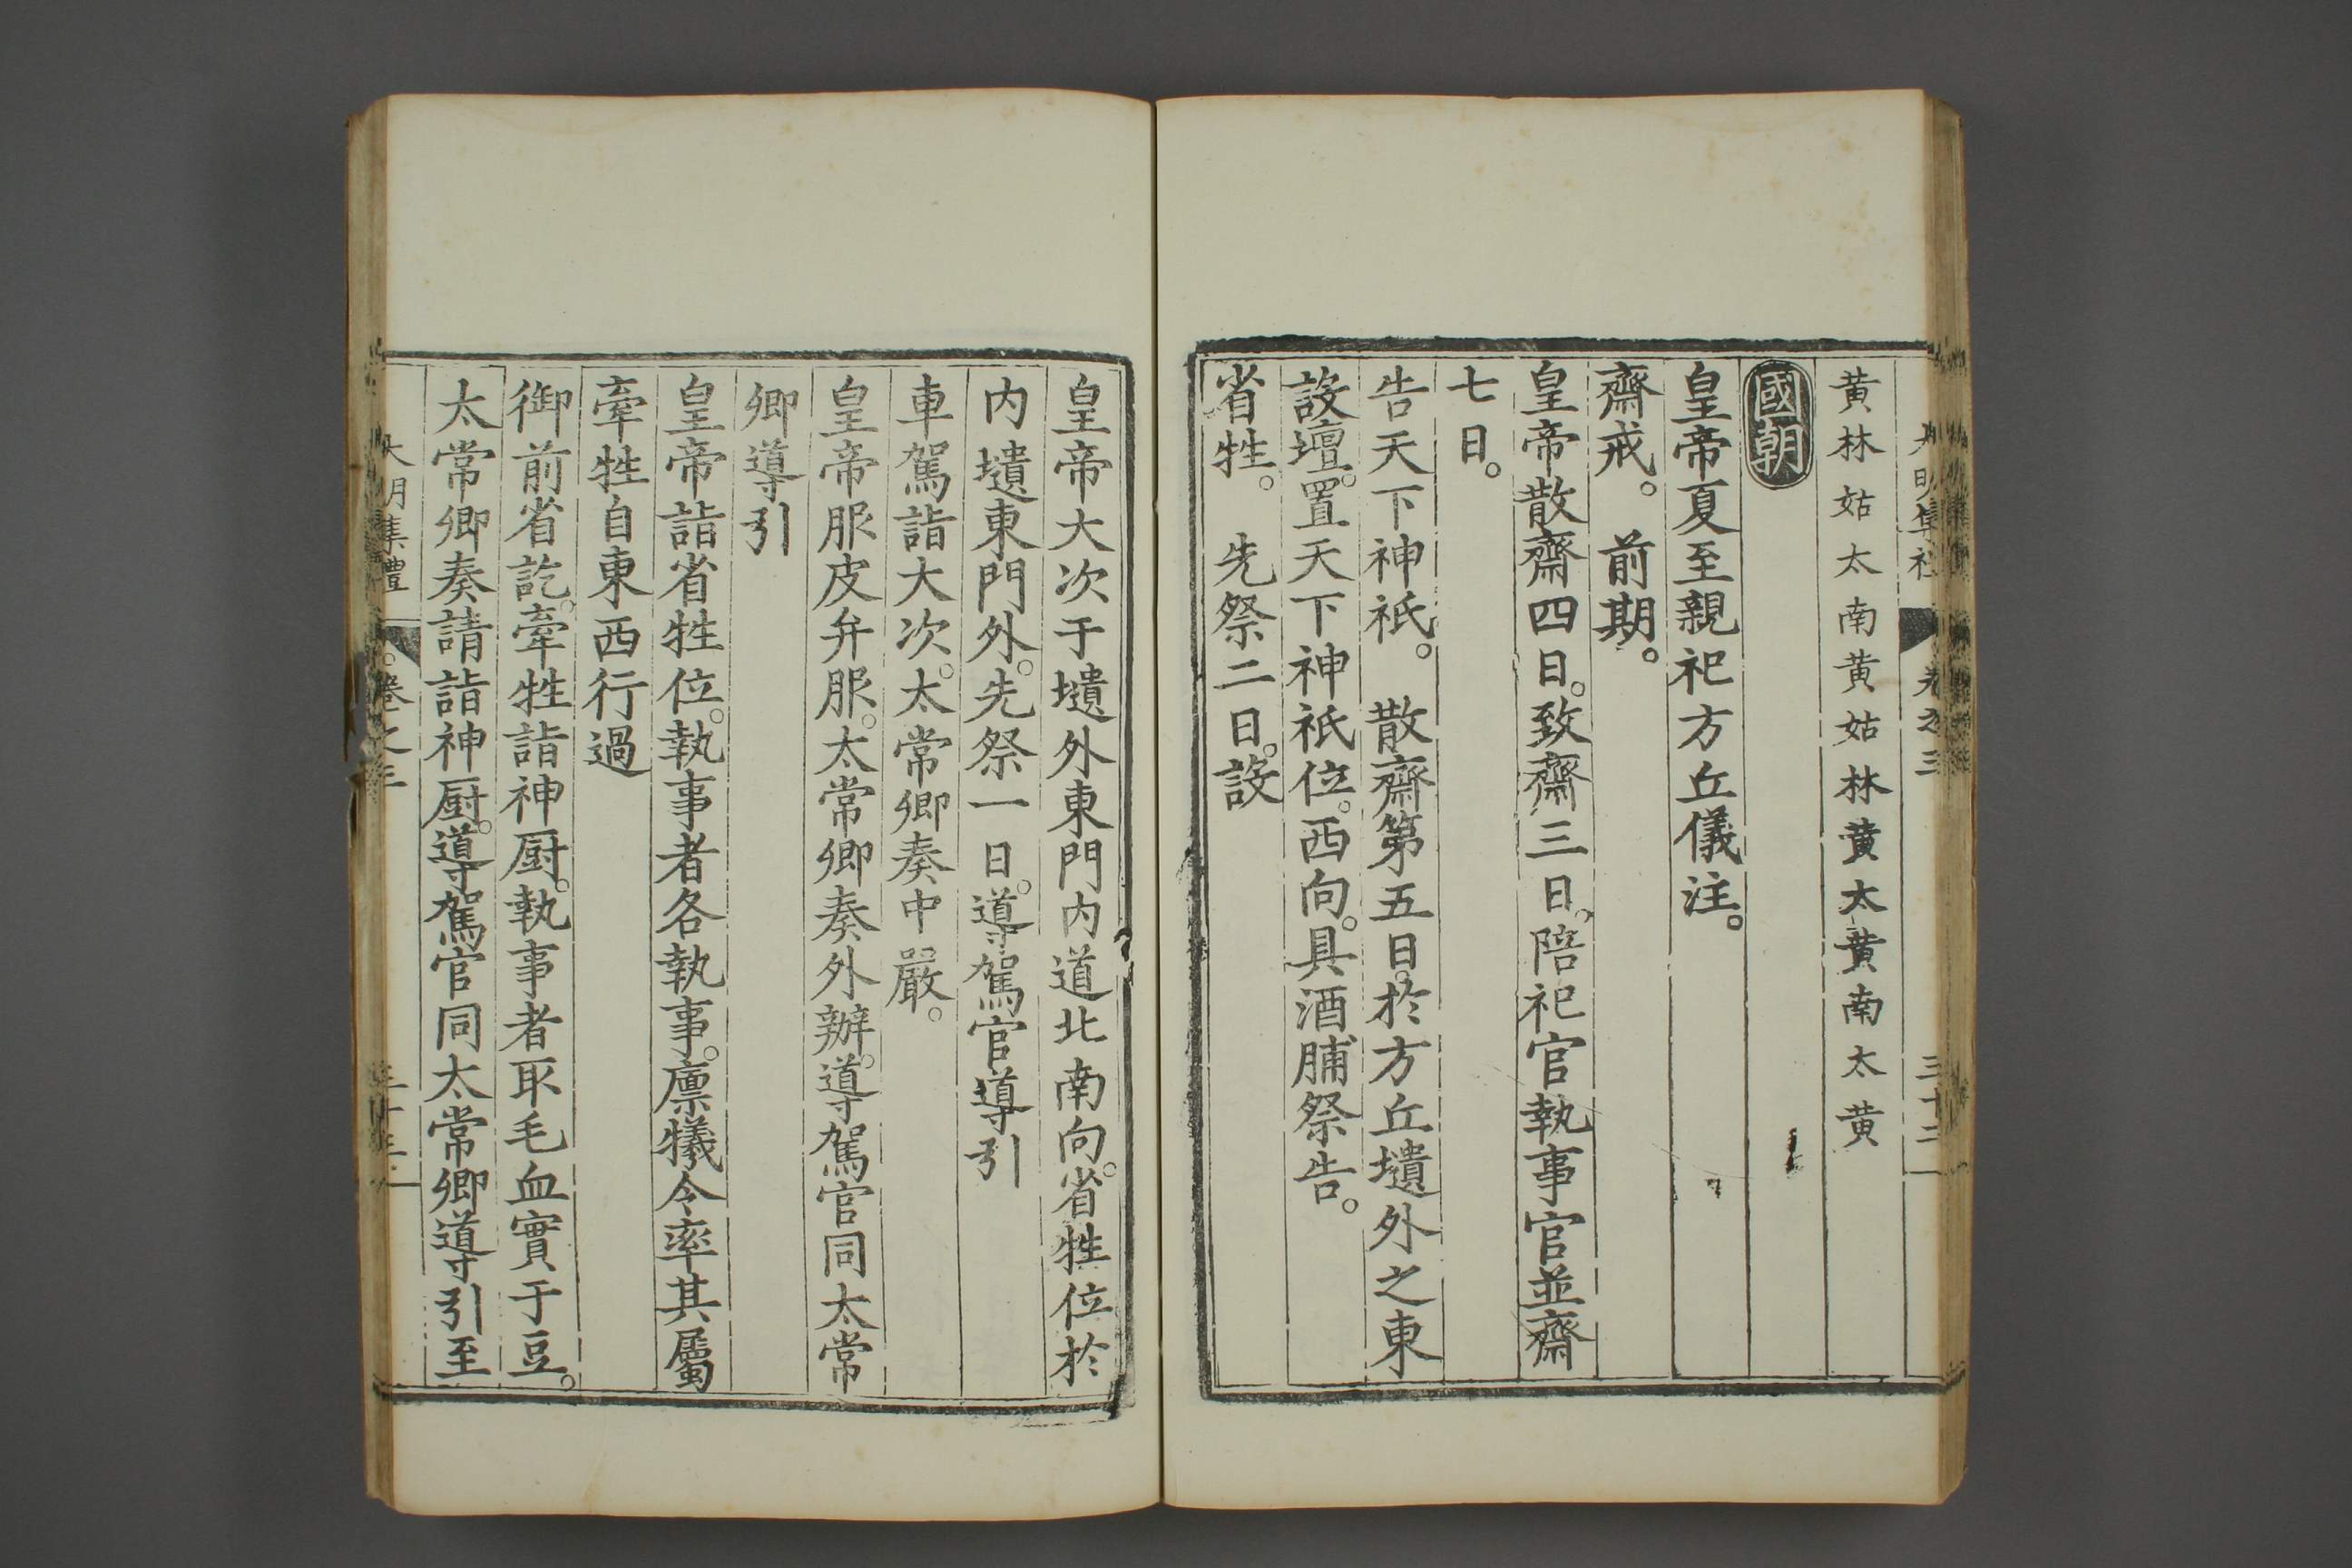 大明集禮 卷之三 三十二
黄林姑太南黄姑林黄太黄南太黄
國朝
皇帝夏至親祀方丘儀注。
齋戒。 前期。
皇帝散齋四日。致齋三日。陪祀官執事官並齋
七日。
告天下神祇。 散齋第五日。於方丘壝外之東
設壇。置天下神祇位。西向。具酒脯祭告。
省牲。 先祭二日。設
皇帝大次于壝外東門内道北南向。省牲位於
内壝東門外。先祭一日。導駕官導引
車駕詣大次。太常卿奏中嚴。
皇帝服皮弁服。太常卿奏外辦。導駕官同太常
卿導引
皇帝詣省牲位。執事者各執事。廩犧令率其屬
牽牲自東西行過
御前省訖。牽牲詣神厨。執事者取毛血實于豆。
太常卿奏請詣神厨。導駕官同太常卿導引至
大明集禮 卷之三